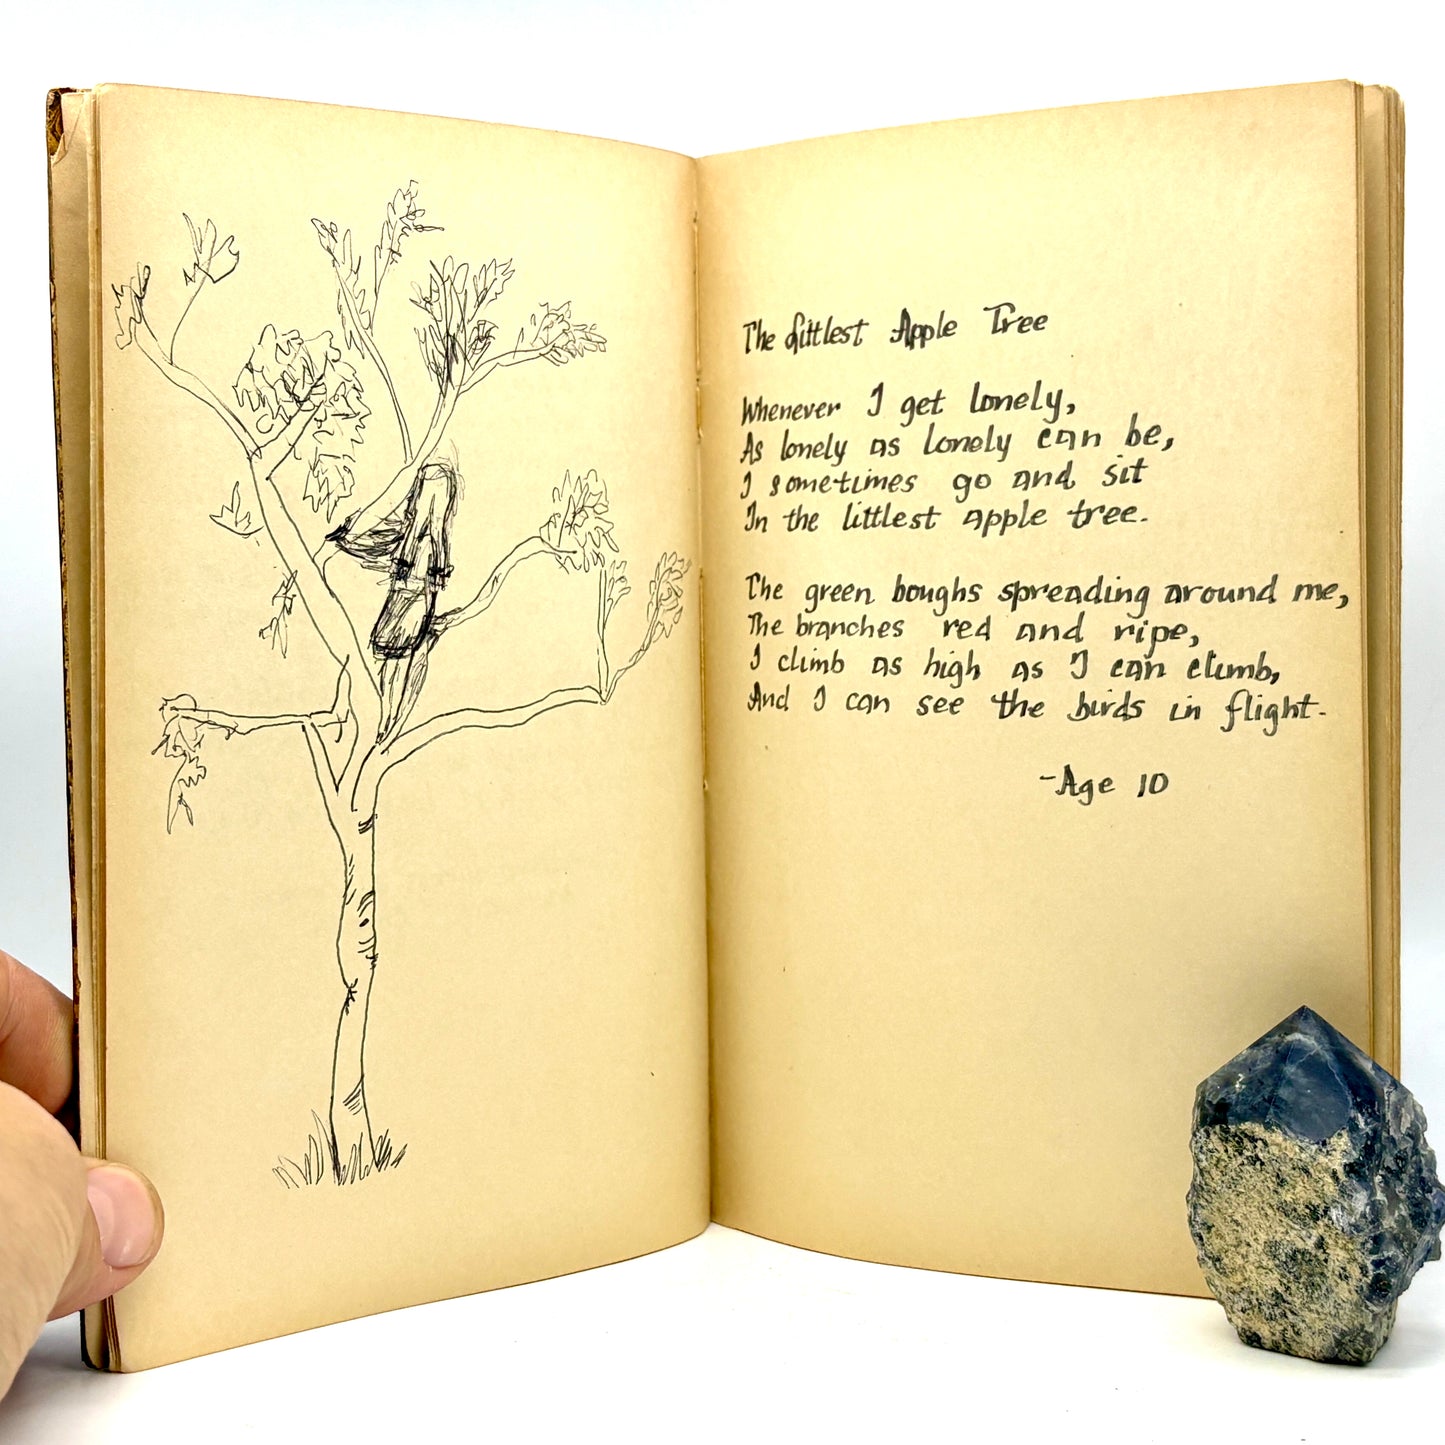 The Littlest Apple Tree
Whenever I get lonely,
As lonely as lonely can be,
I sometimes go and sit
In the littlest apple tree.
The green boughs spreading around me,
The branches red and ripe,
I climb as high as I can climb,
And I can see the birds in flight.
-Age 10